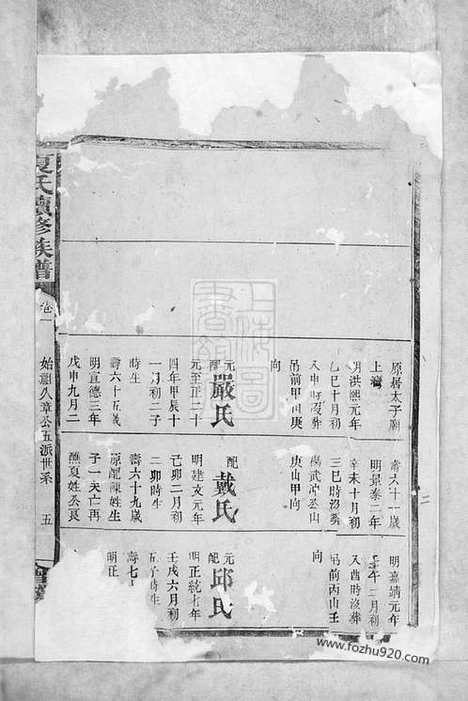 原居太子廟
上灣
明洪熙元年
乙巳十月初
入申時沒葬
吊前甲山庚
向
元配嚴氏
元至正二十
四年甲辰十
一月初二子
時生
壽六十五歲
明宣德三年
戊申九月二
壽六十一歲
明景泰二年
辛未十月初
三巳時沒葬
楊武沖公山
庚山甲向
配戴氏
明建文元年
己卯二月初
二卯時生
壽六十九歲
原配陳姓生
子一夭亡再
醮夏姓公艮
明嘉靖元年
壬午二月初
入酉時沒葬
吊前丙山壬
向
元配邱氏
明正統七年
壬戌六月初
子時生
壽七
明正
夏氏續修族譜
卷一
始祖久章公五派世系
五
上海圖書館
www.fozhu920.com